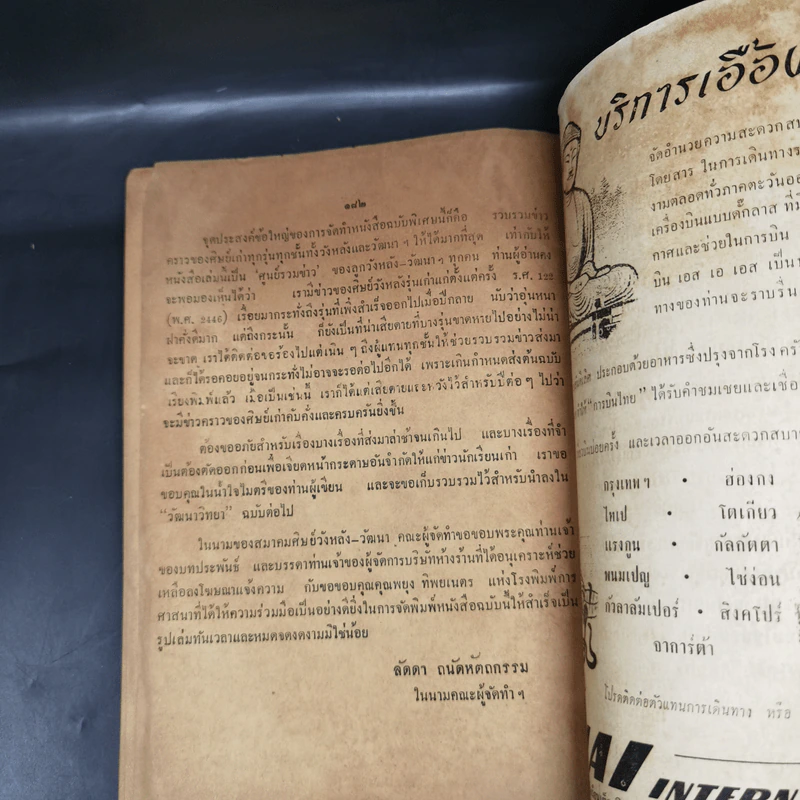 ๑๗๒
จุดประสงค์ข้อใหญ่ของการจัดทำหนังสือฉบับพิเศษนี้ก็คือ รวบรวมข่าว
คราวของศิษย์เก่าทุกรุ่นทุกชั้นทั้งวังหลังและวัฒนา ฯ ให้ได้มากที่สุด เท่ากับให้
หนังสือเล่มนี้เป็น 'ศูนย์รวมข่าว' ของลูกวังหลัง-วัฒนา ฯ ทุกคน ท่านผู้อ่านคง
จะพอมองเห็นได้ว่า เรามีข่าวของศิษย์วังหลังรุ่นเก่าแก่ตั้งแต่ครั้ง ร.ศ. 122
(พ.ศ. 2446) เรื่อยมากระทั่งถึงรุ่นที่เพิ่งสำเร็จออกไปเมื่อปีกลาย นับว่าอุ่นหนา
ฝาคั่งดีมาก แต่ถึงกระนั้น ก็ยังเป็นที่น่าเสียดายที่บางรุ่นขาดหายไปอย่างไม่น่า
จะขาด เราได้ติดต่อขอร้องไปแต่เนิ่น ๆ ถึงผู้แทนทุกชั้นให้ช่วยรวบรวมข่าวส่งมา
และก็ได้รอคอยอยู่จนกระทั่งไม่อาจจะรอต่อไปอีกได้ เพราะเกินกำหนดส่งต้นฉบับ
เรียงพิมพ์แล้ว เมื่อเป็นเช่นนี้ เราก็ได้แต่เสียดายและหวังไว้สำหรับปีต่อ ๆ ไปว่า
จะมีข่าวคราวของศิษย์เก่าคับคั่งและครบครันยิ่งขึ้น
ต้องขออภัยสำหรับเรื่องบางเรื่องที่ส่งมาล่าช้าจนเกินไป และบางเรื่องที่จำ
เป็นต้องตัดออกก่อนเพื่อเจียดหน้ากระดาษอันจำกัดให้แก่ข่าวนักเรียนเก่า เราขอ
ขอบคุณในน้ำใจไมตรีของท่านผู้เขียน และจะขอเก็บรวบรวมไว้สำหรับนำลงใน
"วัฒนาวิทยา" ฉบับต่อไป
ในนามของสมาคมศิษย์วังหลัง-วัฒนา คณะผู้จัดทำขอขอบพระคุณท่านเจ้า
ของบทประพันธ์ และบรรดาท่านเจ้าของผู้จัดการบริษัทห้างร้านที่ได้อนุเคราะห์ช่วย
เหลือลงโฆษณาแจ้งความ กับขอขอบคุณคุณพยง ทิพยเนตร แห่งโรงพิมพ์การ
ศาสนาที่ได้ให้ความร่วมมือเป็นอย่างดียิ่งในการจัดพิมพ์หนังสือฉบับนี้ให้สำเร็จเป็น
รูปเล่มทันเวลาและหมดจดงดงามมิใช่น้อย
ลัดดา ถนัดหัตถกรรม
ในนามคณะผู้จัดทำ ฯ
บริการเอื้อง
จัดอำนวยความสะดวกสบ
โดยสาร ในการเดินทางร
งามตลอดทั่วภาคตะวันออ
เครื่องบินแบบดั๊กลาส ที่มี
กาศและช่วยในการบิน
บิน เอส เอ เอส เป็นห
ทางของท่านจะราบรื่น
ประกอบด้วยอาหารซึ่งปรุงจากโรง ครั
"การบินไทย" ได้รับคำชมเชยและเชื่อ
บ่อยครั้ง และเวลาออกอันสะดวกสบาย
กรุงเทพฯ • ฮ่องกง
ไทเป • โตเกียว
แรงกูน • กัลกัตตา
พนมเปญ • ไซ่ง่อน
กัวลาลัมเปอร์ • สิงคโปร์
จาการ์ต้า
โปรดติดต่อตัวแทนการเดินทาง หรือ
AI INTERN